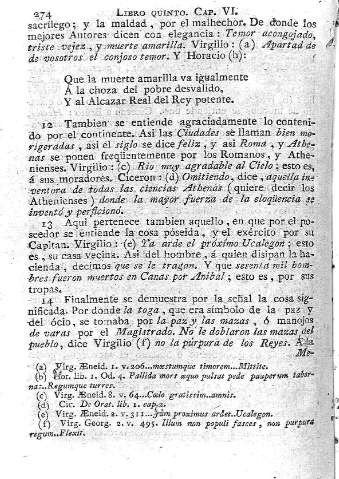 274 LIBRO QUINTO. CAP. VI.
sacrílego; y la maldad, por el malhechor. De donde los
mejores Autores dicen con elegancia: Temor acongojado,
triste vejez, y muerte amarilla. Virgilio: (a) Apartad de
de vosotros el conjoso temor. Y Horacio (b):
Que la muerte amarilla va igualmente
A la choza del pobre desvalido,
Y al Alcazar Real del Rey potente.
12 Tambien se entiende agraciadamente lo conteni-
do por el continente. Asi las Ciudades se llaman bien mo-
rigeradas, y asi el siglo se dice feliz, y asi Roma, y Athe-
nas se ponen freqüentemente por los Romanos, y Athe-
nienses. Virgilio: (c) Rio muy agradable al Cielo; esto es,
á sus moradores. Ciceron: (d) Omitiendo, dice, aquella in-
ventora de todas las ciencias Athenas (quiere decir los
Athenienses) donde la mayor fuerza de la eloqüencia se
inventó y perficionó.
13 Aqui pertenece tambien aquello, en que por el po-
seedor se entiende la cosa poseida, y el exército por su
Capitan. Virgilio: (e) Ya arde el próximo Ucalegon; esto
es, su casa vecina. Asi del hombre, á quien disipan la ha-
cienda, decimos que se le tragan. Y que sesenta mil hom-
bres fueron muertos en Canas por Anibal; esto es, por sus
tropas.
14 Finalmente se demuestra por la señal la cosa sig-
nificada. Por donde la toga, que era símbolo de la paz y
del ócio, se tomaba por la paz y las mazas, ó manojos
de varas por el Magistrado. No le doblaron las mazas del
pueblo, dice Virgilio (f) no la púrpura de los Reyes. A la
Me-
(a) Virg. Æneid. 1. v. 206...mœstumque timorem...Mittite.
(b) Hor. lib. 1. Od. 4. Pallida mors æquo pulsat pede pauperum taber-
nas...Regumque turres.
(c) Virg. Æneid. 8. v. 64...Cœlo gratissim...amnis.
(d) Cic. De Orat. lib. 1. cap.2.
(e) Virg. Æneid. 2. v. 311...jam proximus ardet..Ucalegon.
(f) Virg. Georg. 2. v. 495. Illum non populi fasces, non purpura
regum..Flexit.